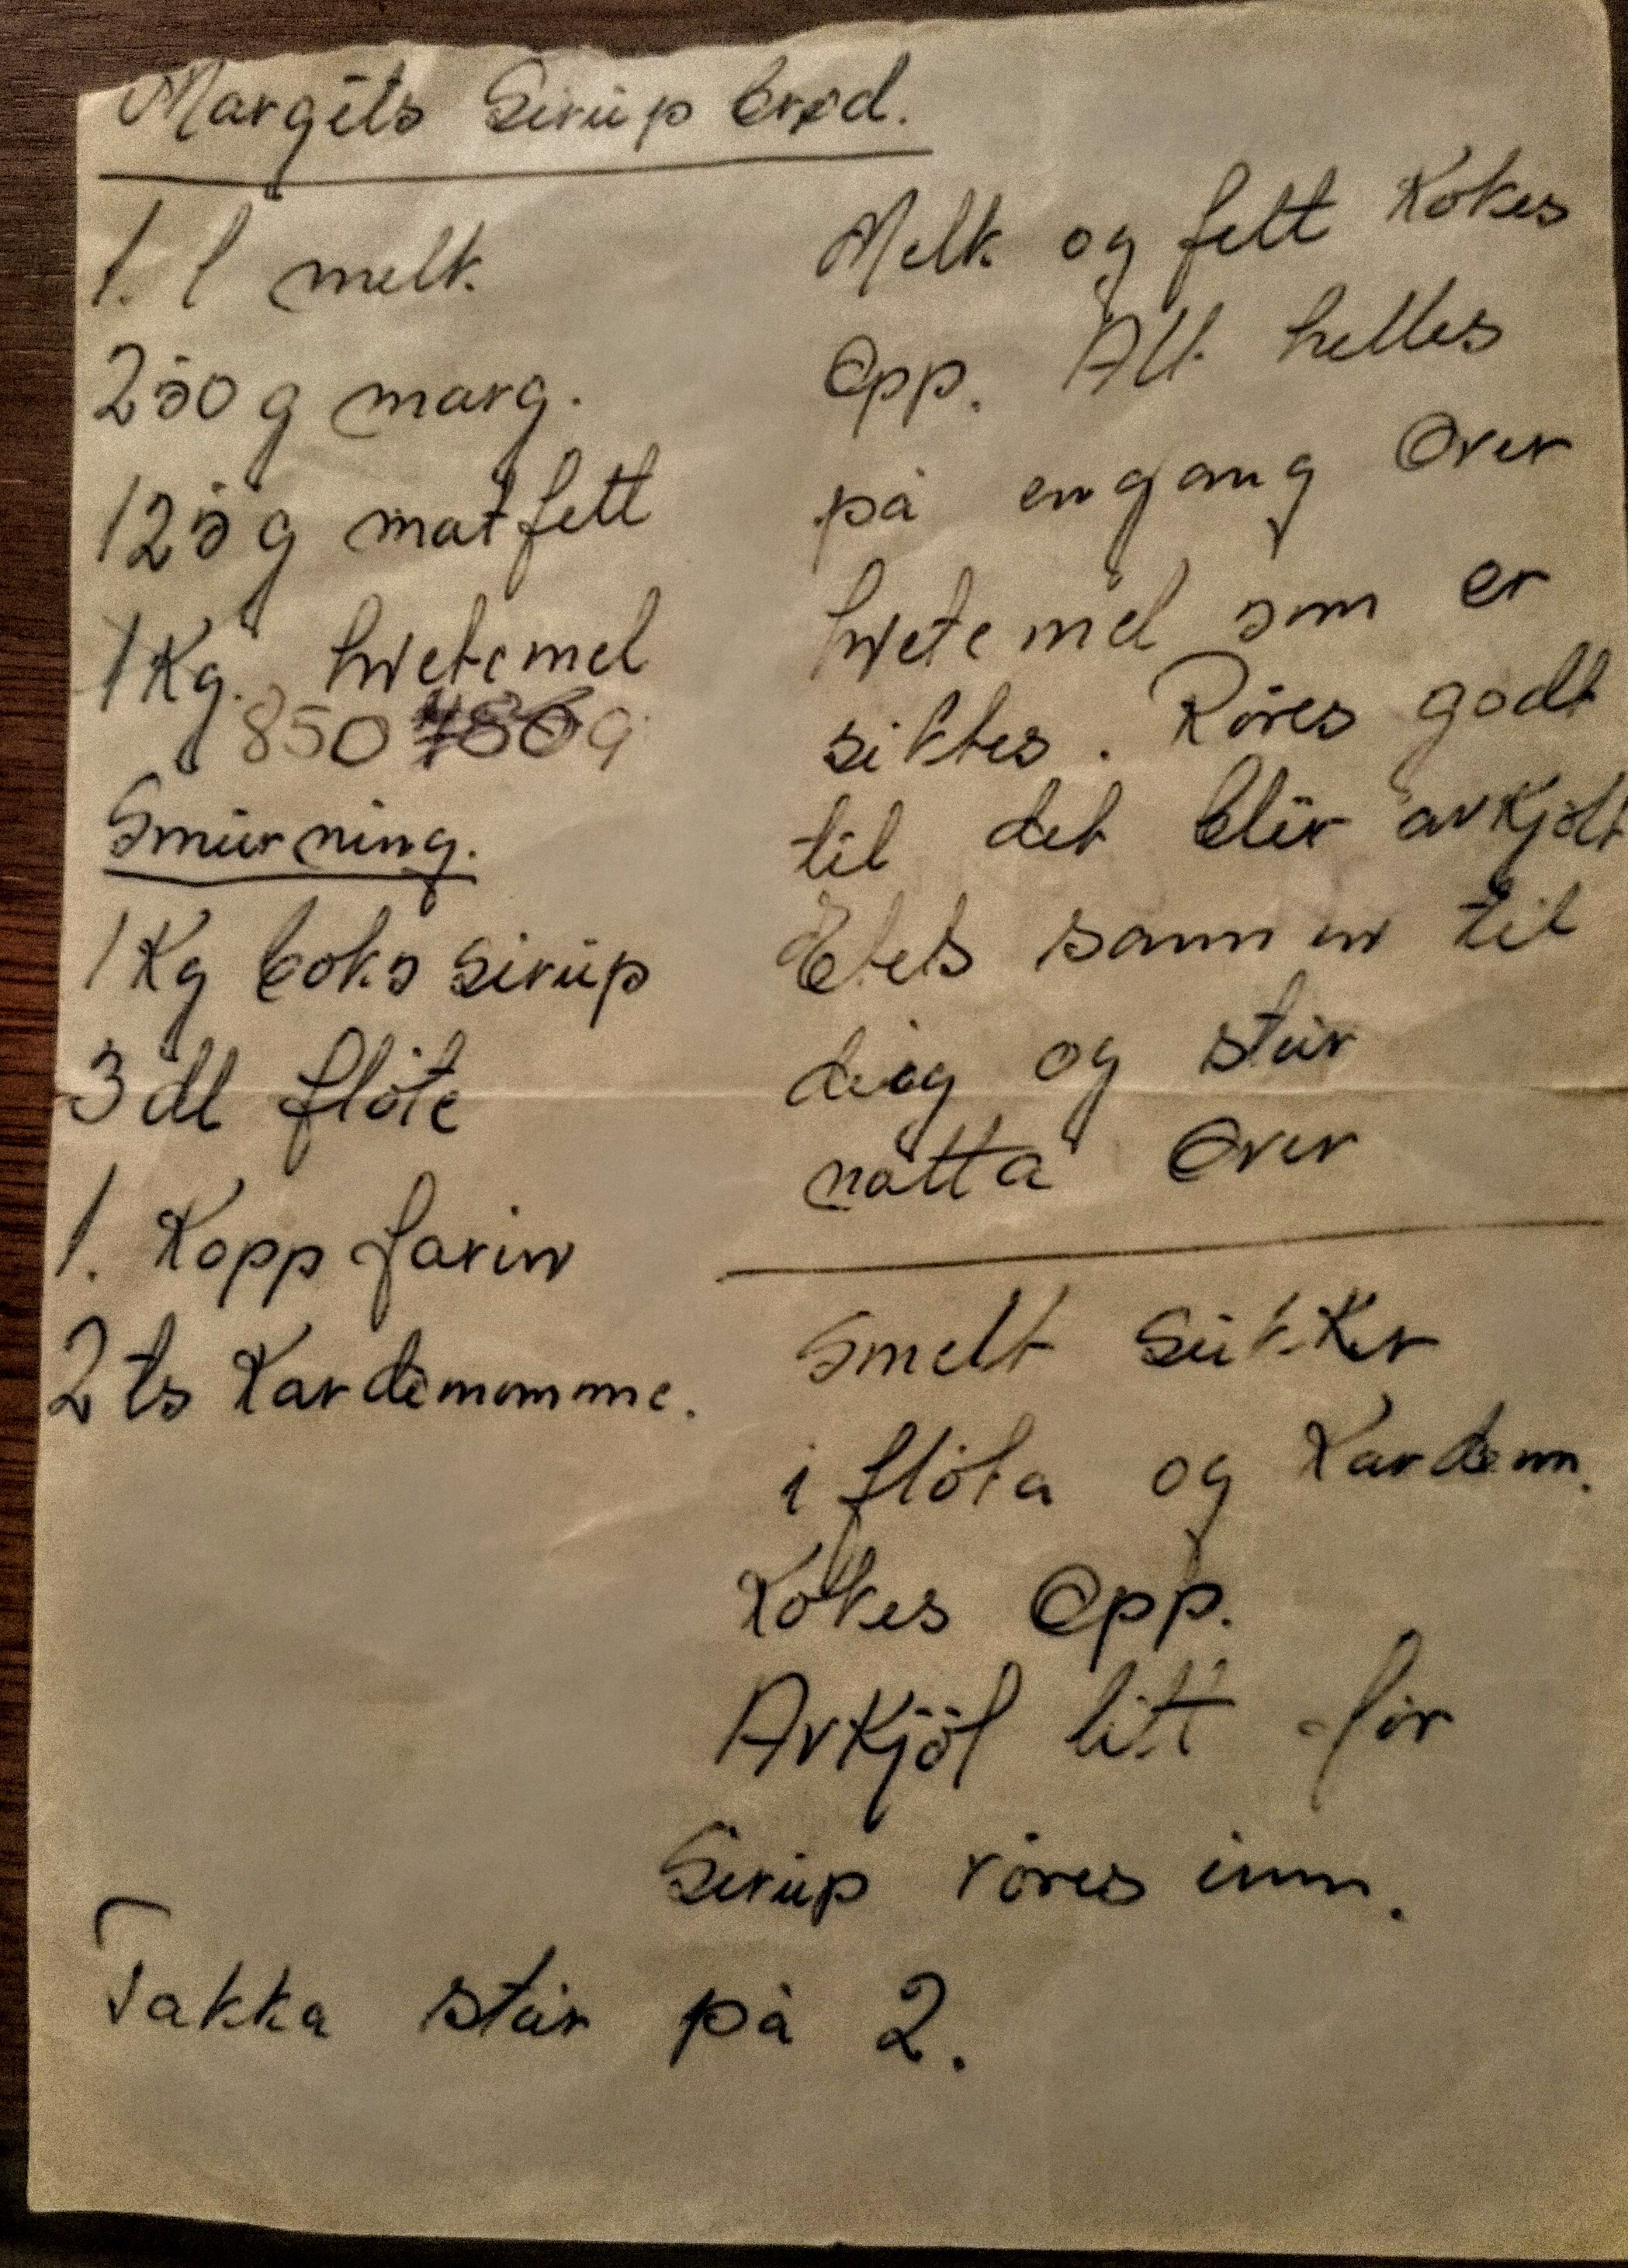 Margits Sirup brød.
1. l melk.
250 g marg.
125 g matfett
1 Kg. hvetemel
850 g
Smurning.
1 Kg boks sirup
3 dl flöte
1. Kopp farin
2 ts Kardemomme.
Melk og fett Kokes
Opp. Alt helles
på engang Over
hvetemel som er
siktes. Röres godt
til det blir avkjölt
Eltes sammen til
deig og står
natta Over
Smelt sukker
i flöta og Kardem.
Kokes Opp.
Avkjöl litt för
Sirup röres inn.
Takka står på 2.